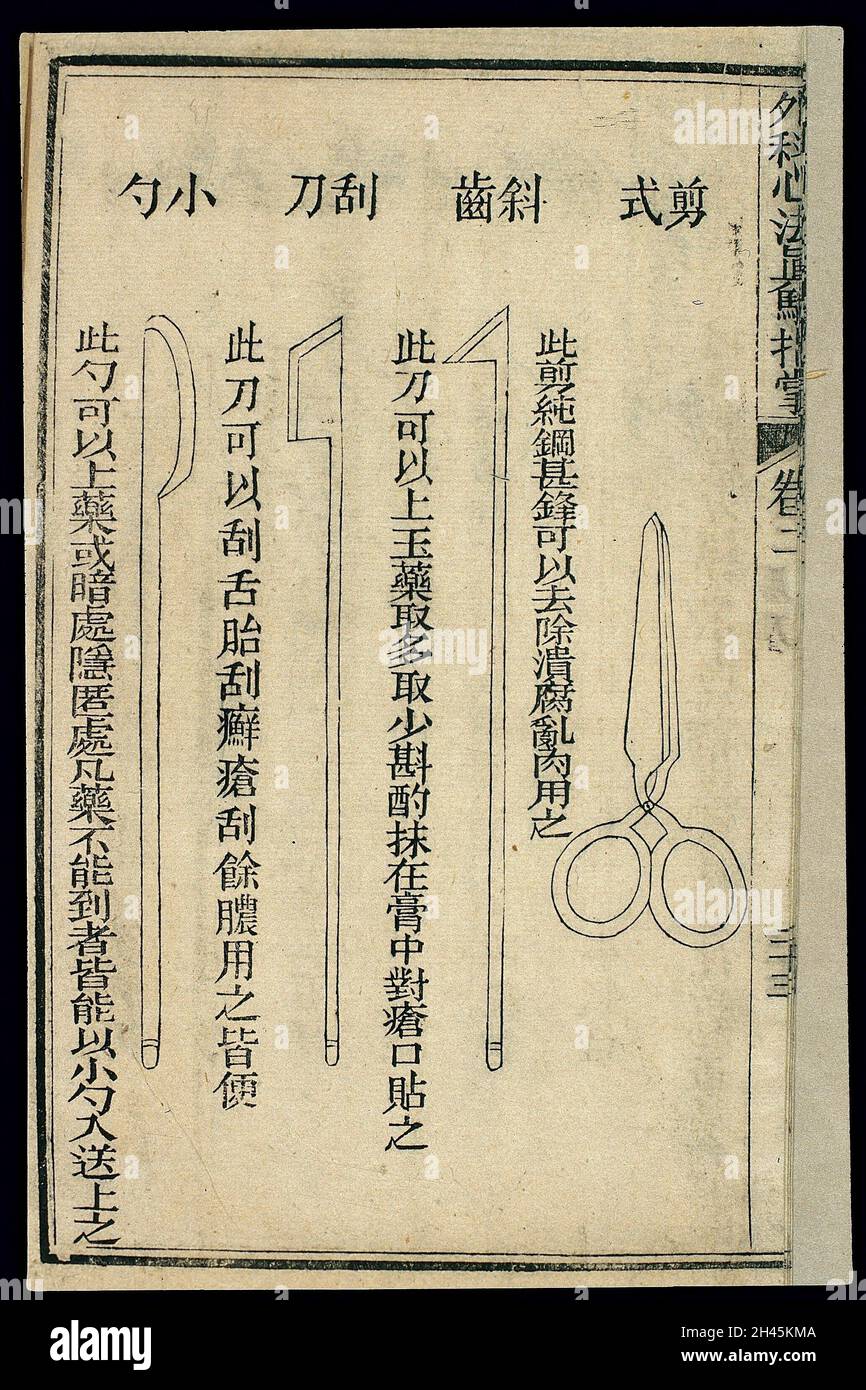 外科心法真驗指掌 卷二
二十三
剪式
此剪純鋼甚鋒可以去除潰腐亂肉用之
斜齒
此刀可以上玉藥取多取少斟酌抹在膏中對瘡口貼之
刮刀
此刀可以刮舌胎刮癬瘡刮餘膿用之皆便
小勺
此勺可以上藥或暗處隱匿處凡藥不能到者皆能以小勺入送上之
alamy
alamy
Image ID: 2H45KMA
www.alamy.com